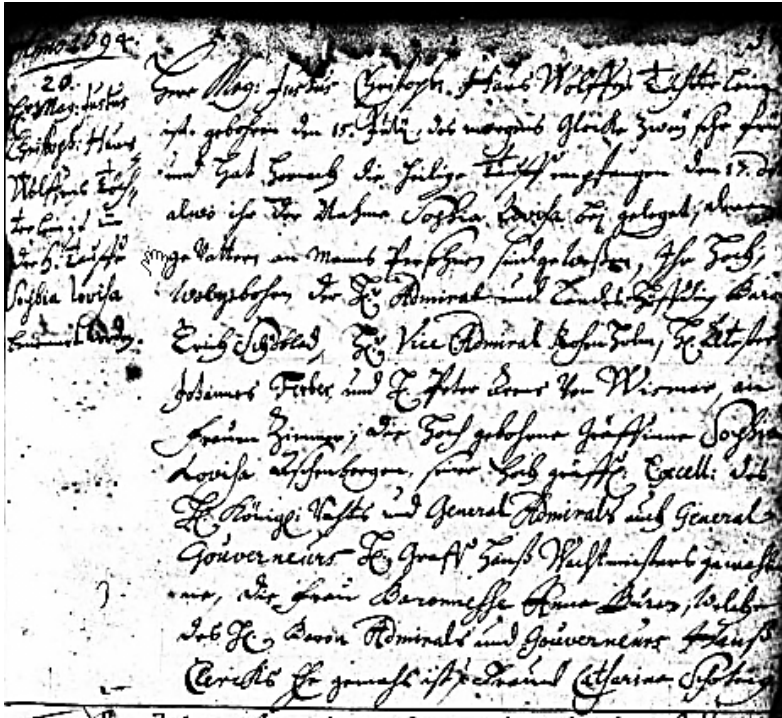 Anno 1694.
20.
H. Mag: Justus
Christoph: Hans
Wolffens Töch¬
terlein ist in
der H. Tauffe
Sophia Lovisa
benennet worden.
Herr Mag: Justus Christoph. Hans Wolffens Töchterlein
ist gebohren den 15. July, des morgens Glocke zwey sehr früh
und hat hernach die heilige Tauffe empfangen den 17.
alwo ihr der Nahme Sophia Lovisa bey geleget, deren
gevattern an Manns Persohnen sind gewesen, Ihr Hoch¬
Wolgebohrn der H. Admiral und Landes Höffding Baron
Erich Sjöblad, H. Vice Admiral H. Eltester
Johannes Ferber und H. Peter von Wismar, an
Frauen Zimmer, die Hoch gebohrne Gräffinne Sophia
Lovisa Aschenbergen, seine Hoch gräffl. Excell: des
H. Königl: Rahts und General Admirals auch General
Gouverneurs H. Graff Hanß Wachtmeisters gemahl
die Frau Baronnesse Anna welche
des H. Baron Admirals und Gouverneurs Hanß
Clercks Ehe gemahl ist, Frau Catharina